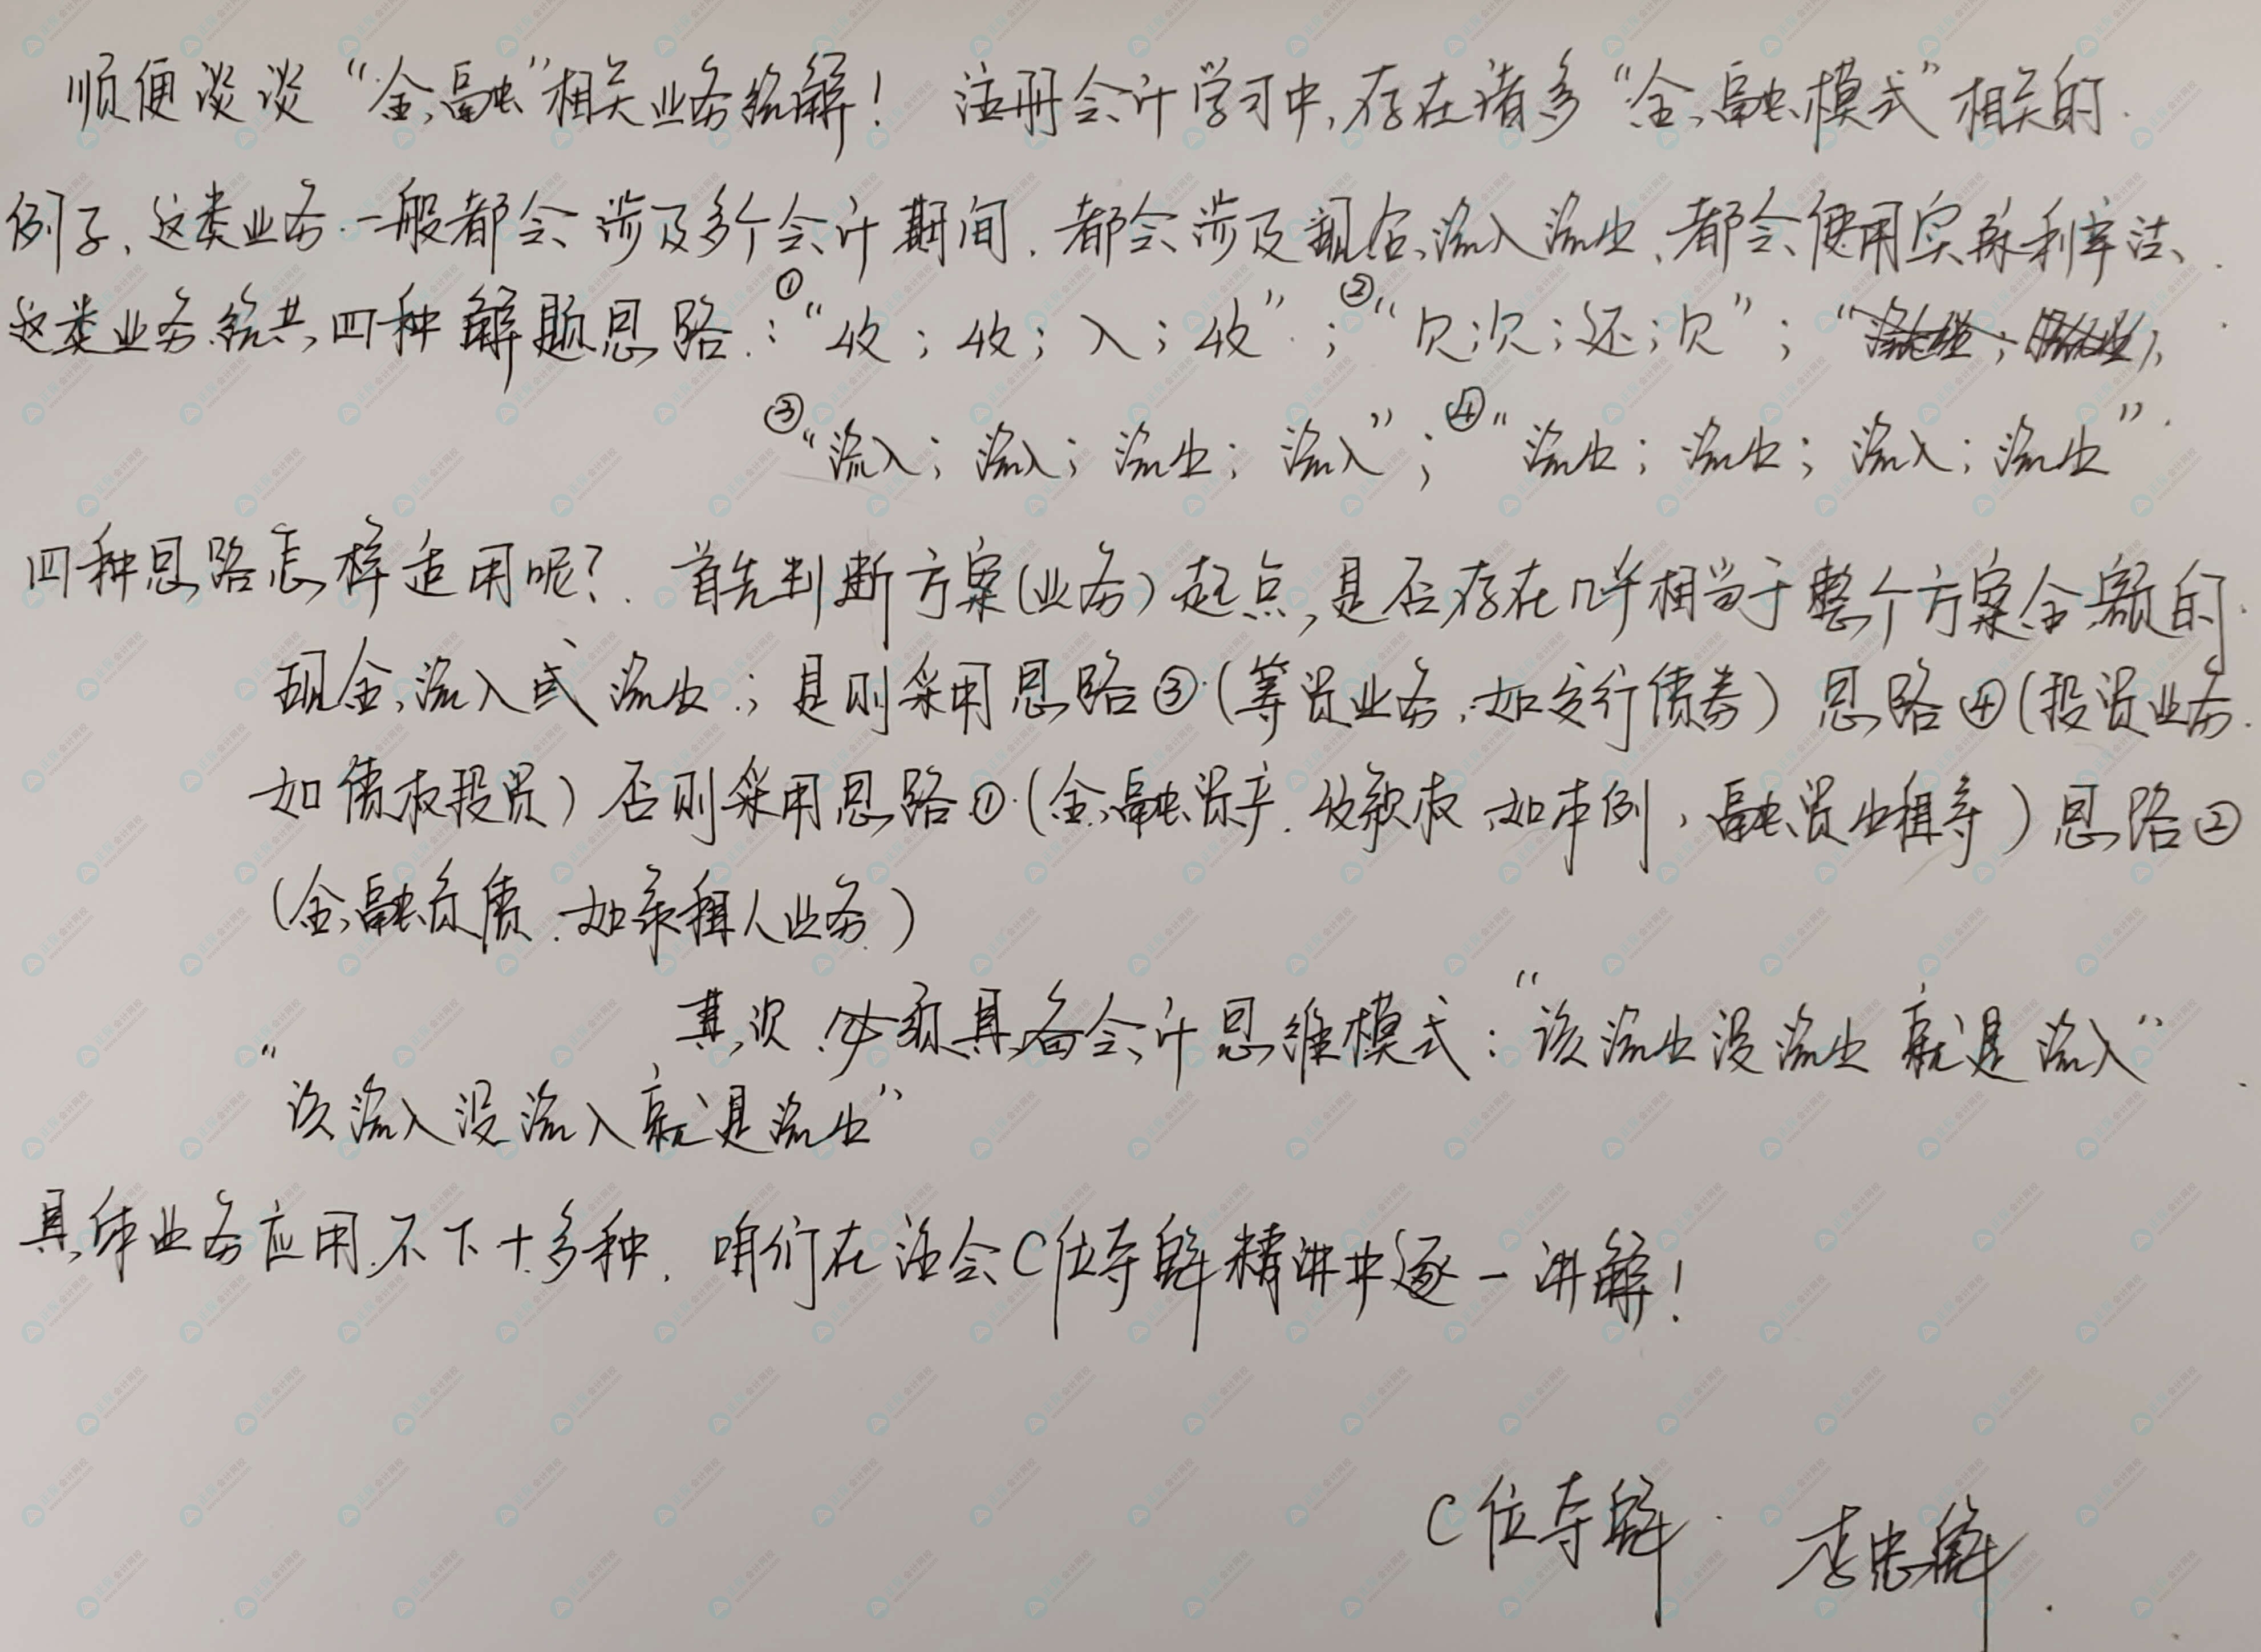 顺便谈谈“金融”相关业务统解！ 注册会计学习中，存在诸多“金融模式”相关的
例子，这类业务一般都会涉及多个会计期间，都会涉及现金流入流出，都会使用实际利率法、
这类业务统共四种解题思路：①“收；收；入；收”；②“欠；欠；还；欠”；“
③“流入；流入；流出；流入”；④“流出；流出；流入；流出”
四种思路怎样适用呢？首先判断方案（业务）起点，是否存在几乎相当于整个方案金额的
现金流入或流出；是则采用思路③（筹资业务，如发行债券）思路④（投资业务
如债权投资）否则采用思路①（金融资产．收款权，如本例，融资出租等）思路②
（金融负债．如承租人业务）
其次必须具备会计思维模式：“该流出没流出就是流入”
“该流入没流入就是流出”
具体业务应用不下十多种．咱们在注会C位夺魁精讲中逐一讲解！
C位夺魁 李忠魁
正保会计网校
www.chinaacc.com